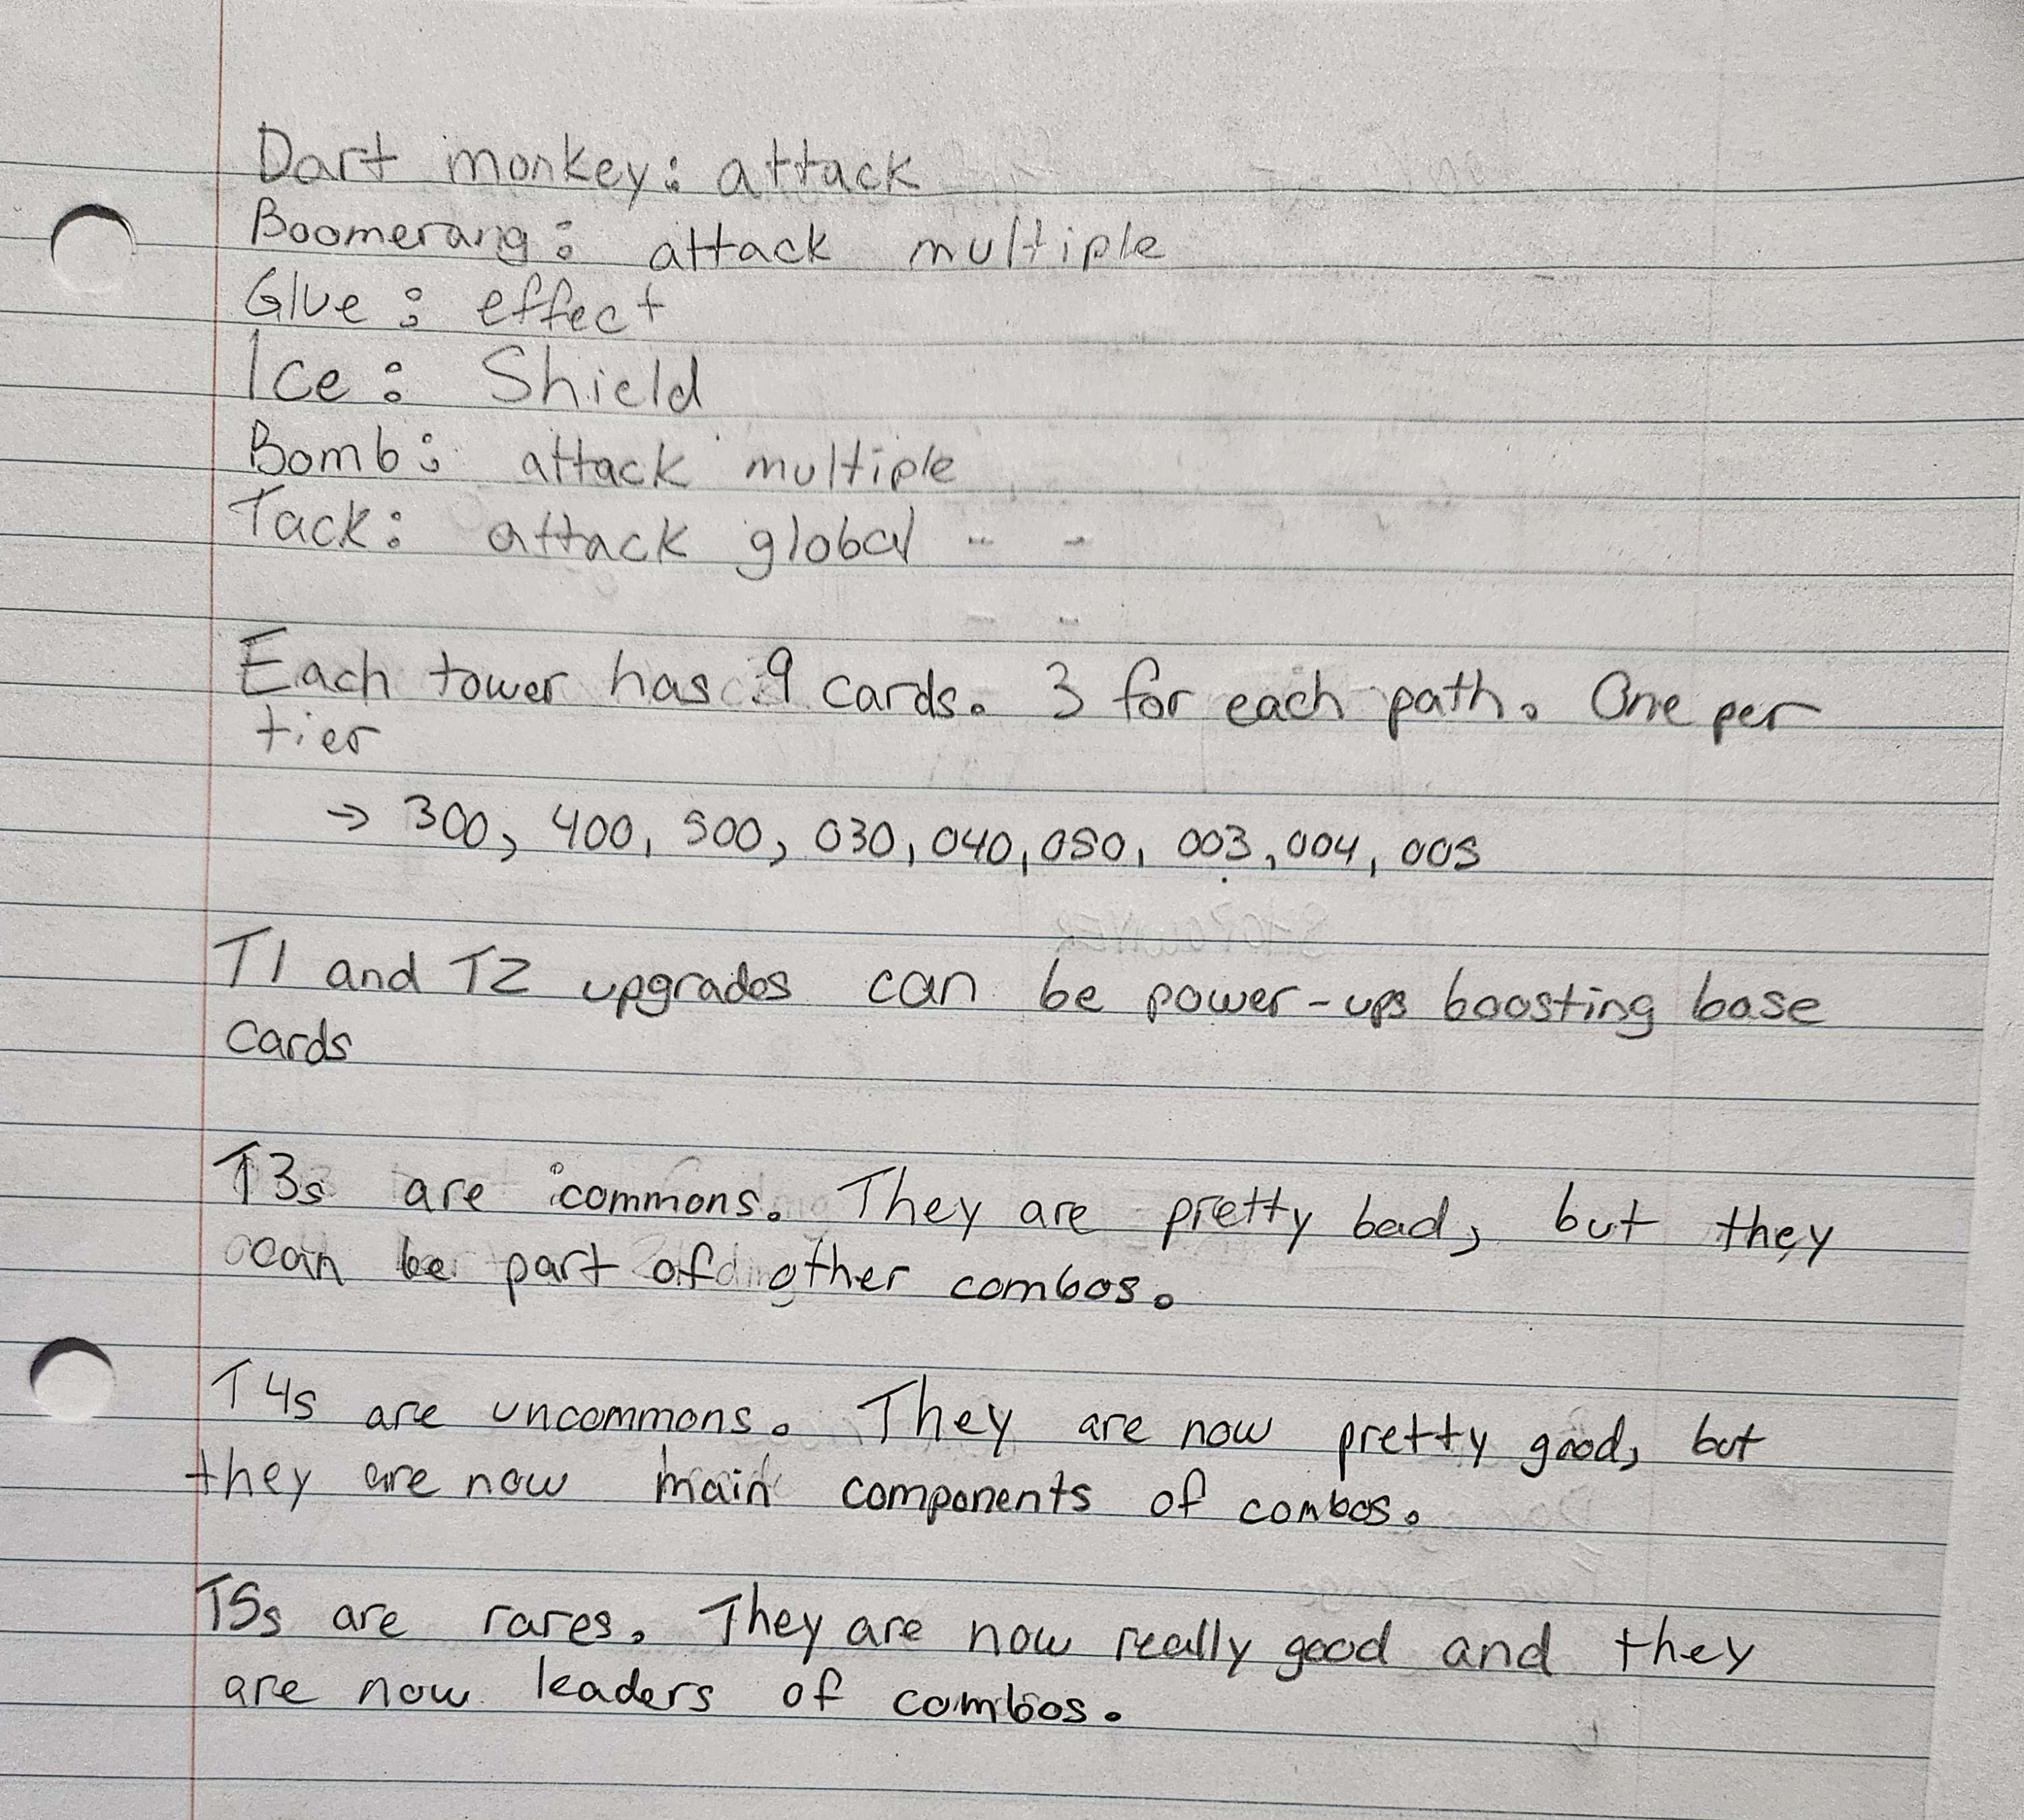 Dart monkey: attack
Boomerang: attack multiple
Glue: effect
Ice: Shield
Bomb: attack multiple
Tack: attack global
Each tower has 9 cards. 3 for each path. One per
tier
→ 300, 400, 500, 030, 040, 050, 003, 004, 005
T1 and T2 upgrades can be power-ups boosting base
cards
T3s are commons. They are pretty bad, but they
can be part of other combos.
T4s are uncommons. They are now pretty good, but
they are now main components of combos.
T5s are rares. They are now really good and they
are now leaders of combos.